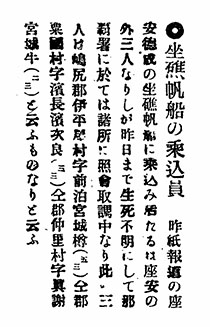 ◉坐礁帆船の乗込員 昨紙報道の座
安徳成の坐礁帆船に乗込み居たるは座安の
外三人なりしが昨日まで生死不明にして那
覇署に於ては諸所に照會取調中なり此三
人は島尻郡伊平屋村字前泊宮城樽(三五)仝郡
粟國村字濱長濱次良(二三)仝郡仲里村字眞謝
宮城牛(二三)と云ふものなりと云ふ